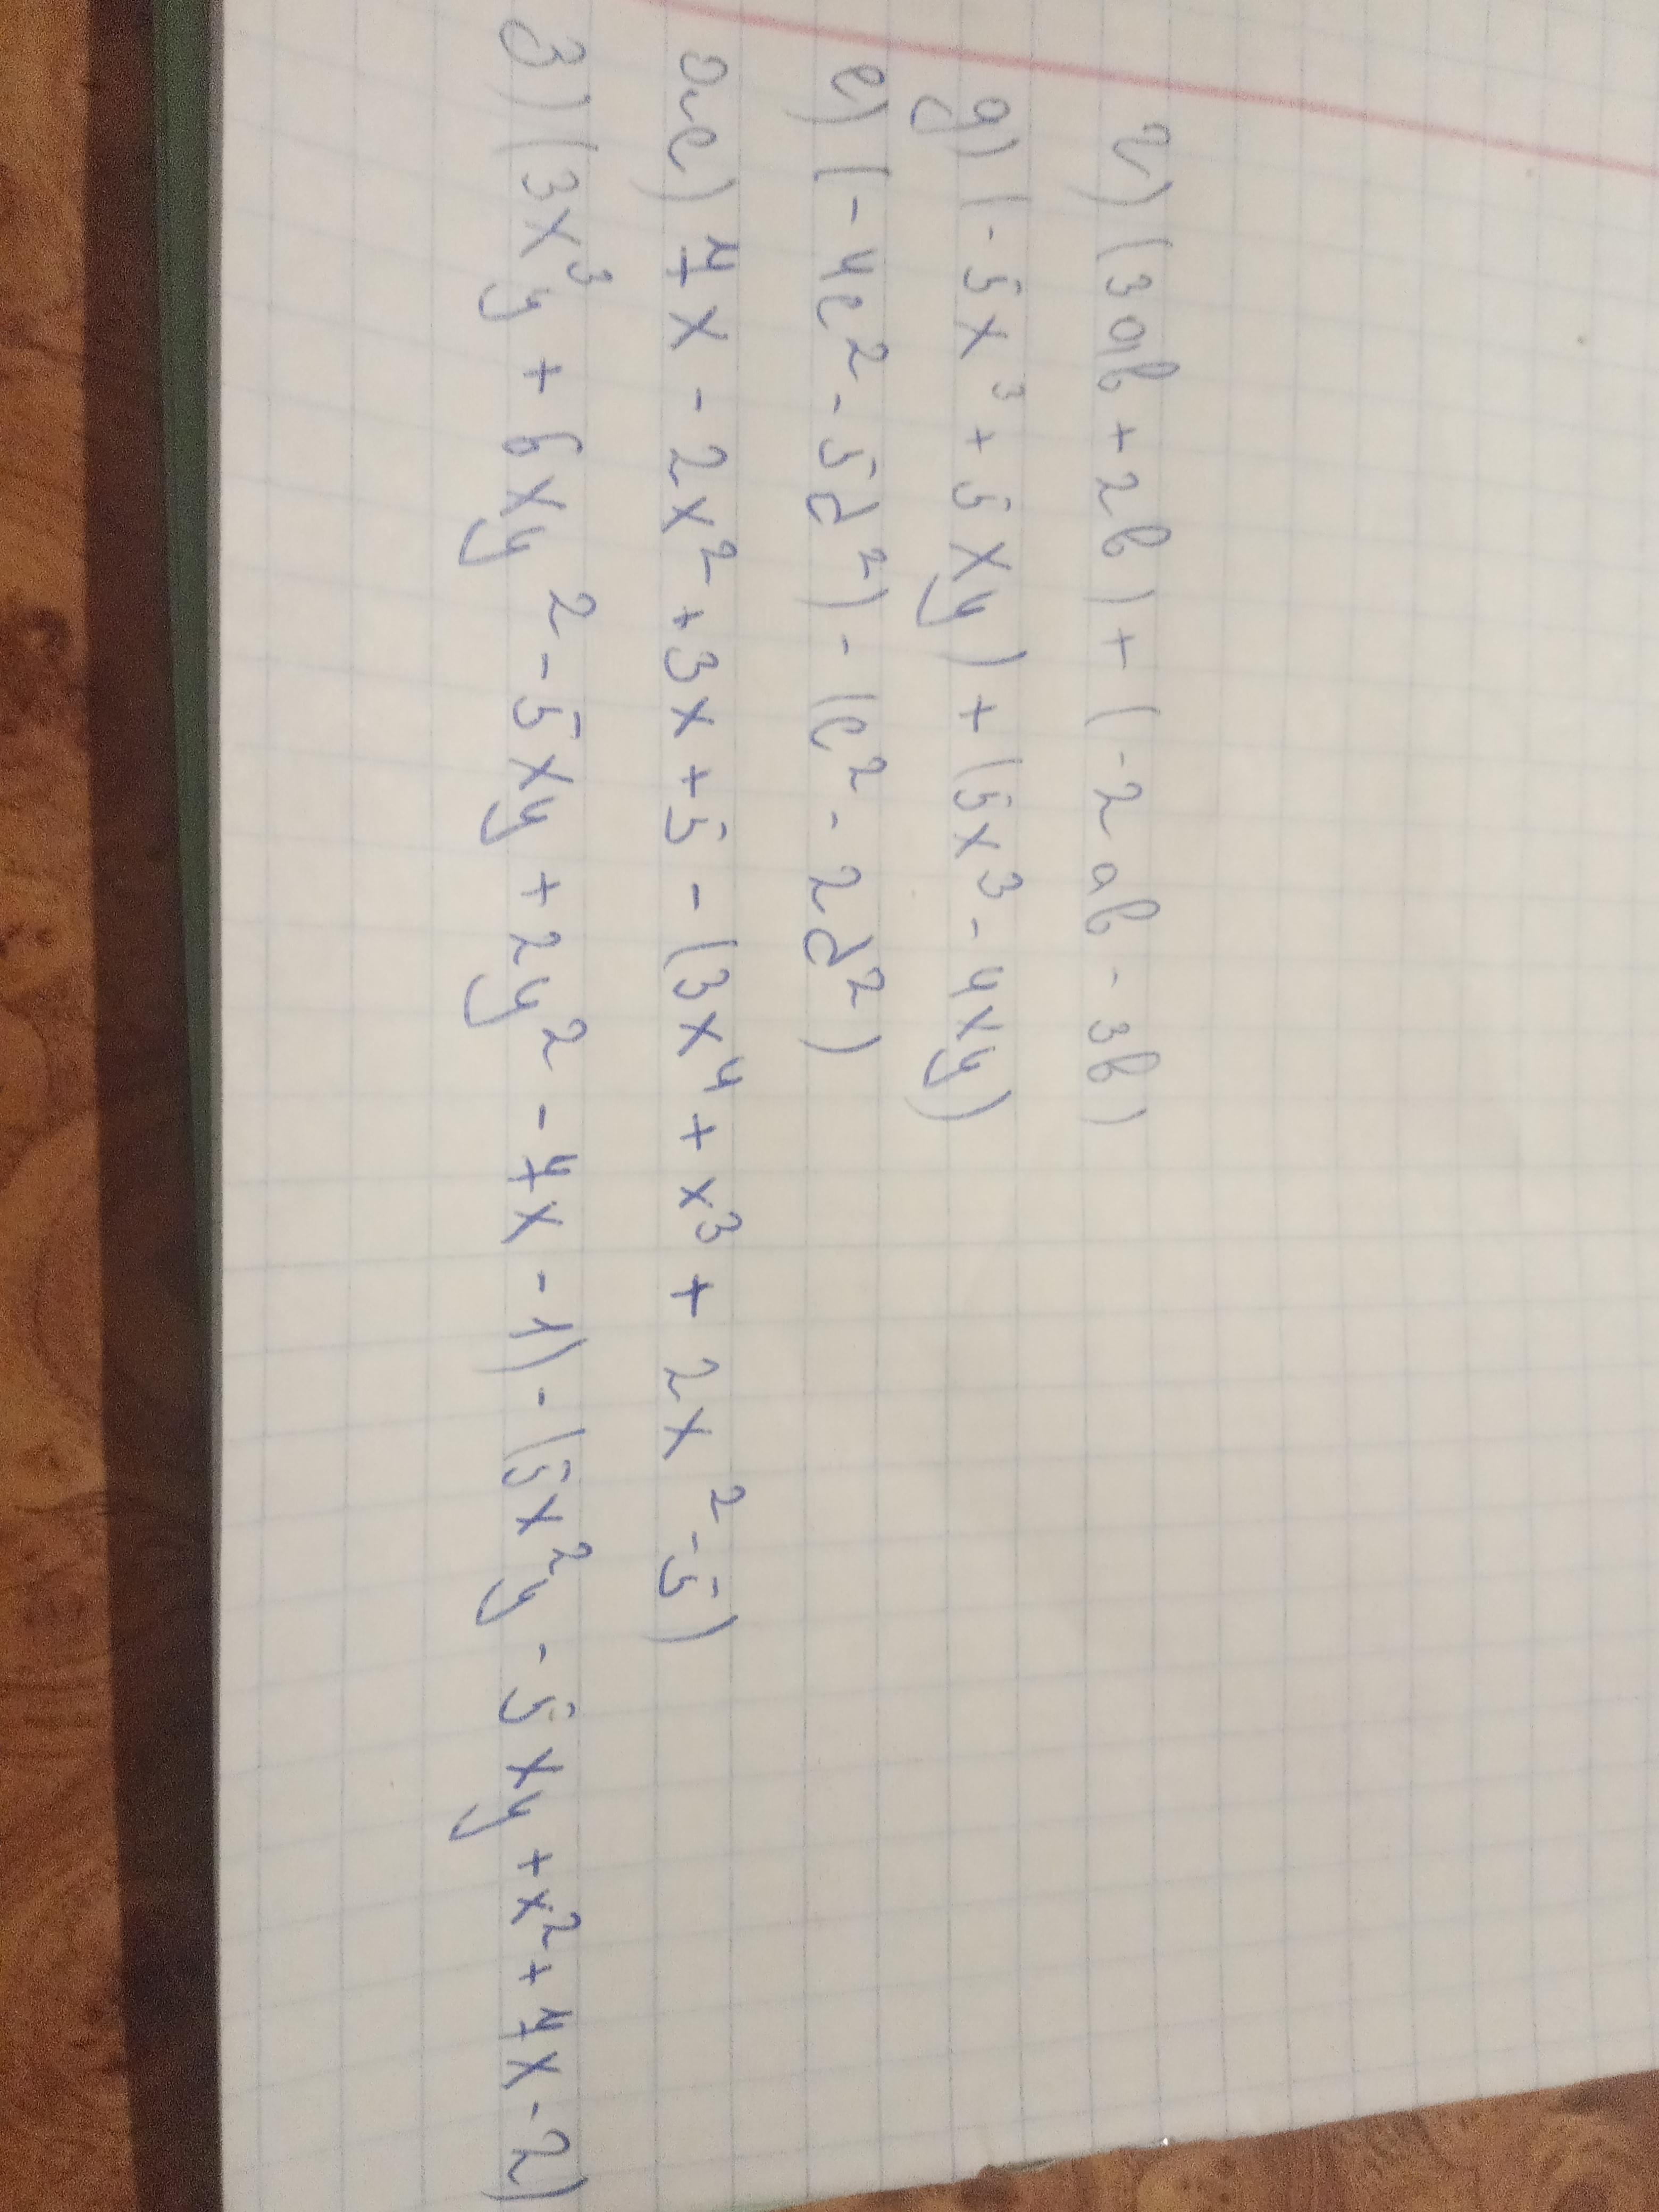 г) (3ab + 2b) + (-2ab - 3b)
д) (-5x³ + 5xy) + (5x³ - 4xy)
е) (-4c² - 5d²) - (c² - 2d²)
ж) 4x - 2x² + 3x + 5 - (3x⁴ + x³ + 2x² - 5)
з) (3x³y + 6xy² - 5xy + 2y² - 4x - 1) - (5x²y - 5xy + x² + 4x - 2)